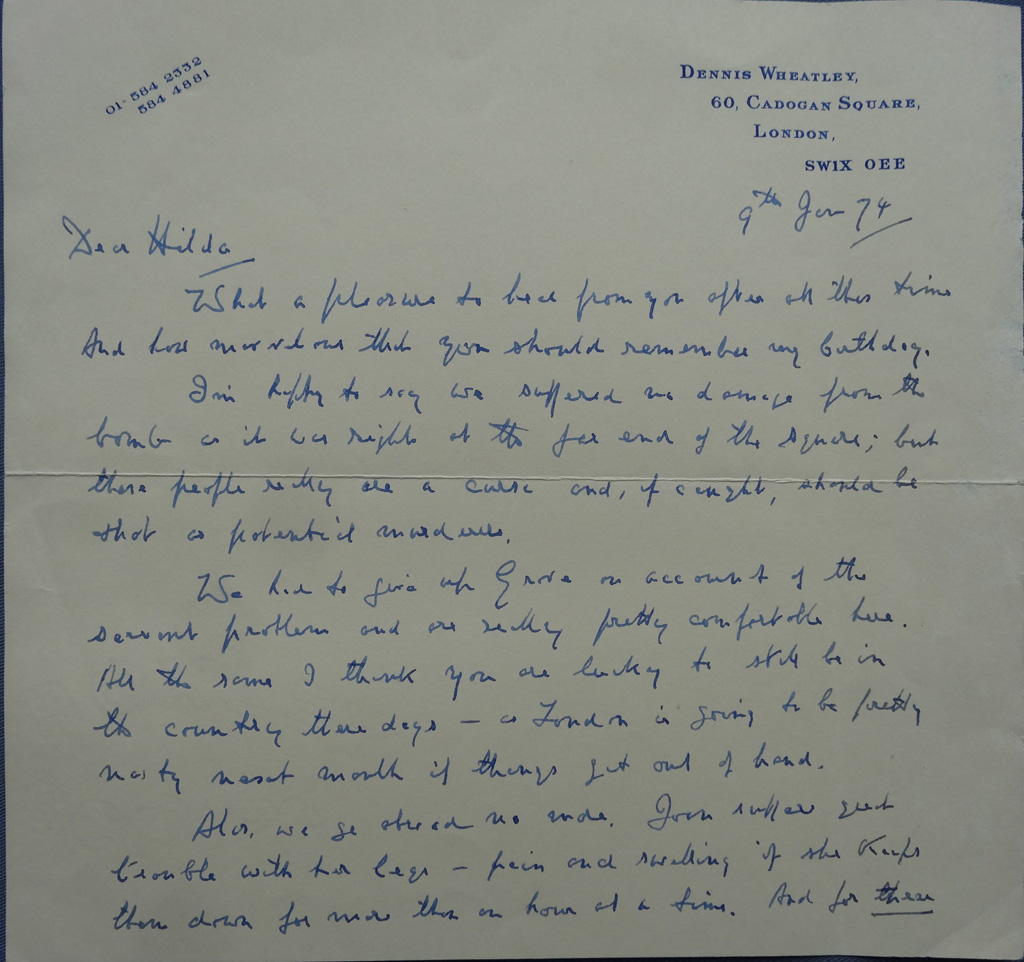 01-584 2332
584 4881
DENNIS WHEATLEY,
60, CADOGAN SQUARE,
LONDON,
SW1X OEE
9th Jan 74
Dear Hilda
What a pleasure to hear from you after all this time
And how marvelous that you should remember my birthday.
I'm happy to say we suffered no damage from the
bomb as it was right at the far end of the square; but
these people really are a curse and, if caught, should be
shot as potential murderers.
We had to give up Grove on account of the
servant problem and are really pretty comfortable here.
All the same I think you are lucky to still be in
the country these days – as London is going to be pretty
nasty next month if things get out of hand.
Alas, we go abroad no more. Joan suffers great
trouble with her legs – pain and swelling if she keeps
them down for more than an hour at a time. And for these